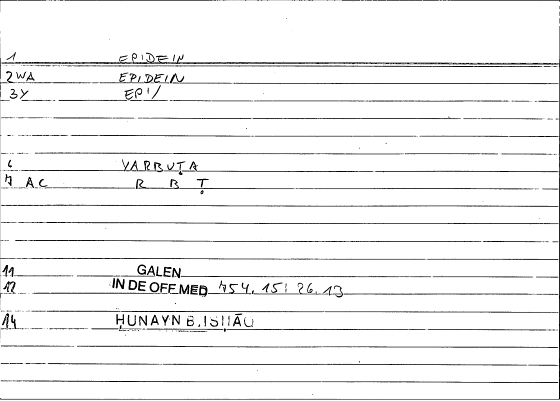 1 EPIDEIN
2WA EPIDEIN
3Y EPI/
6 YARBUṬA
7 AC R B Ṭ
11 GALEN
12 IN DE OFF.MED 754. 15: 26. 13
14 ḤUNAYN B.ISḤĀQ